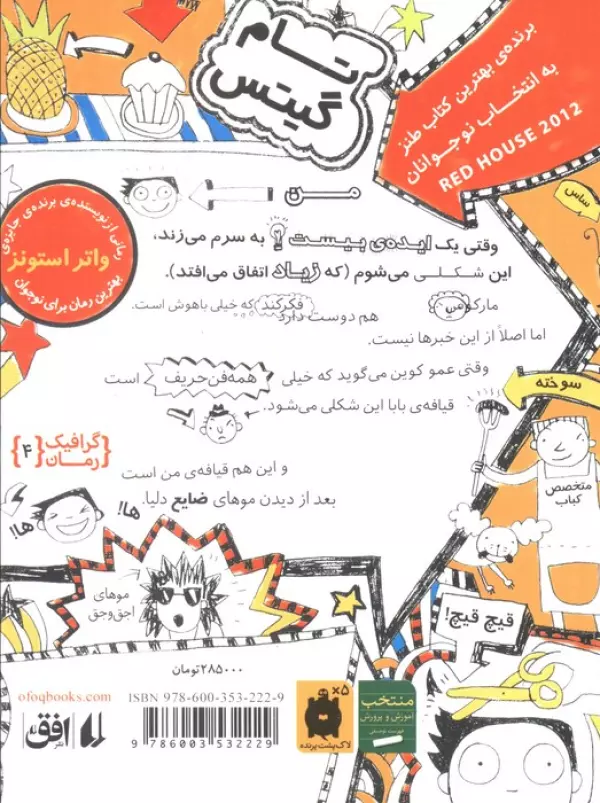 تام
گیتس
برنده‌ی بهترین کتاب طنز
به انتخاب نوجوانان
RED HOUSE 2012
ساس
من
وقتی یک ایده‌ی بیست به سرم می‌زند،
این شکلی می‌شوم (که زیاد اتفاق می‌افتد).
مارکوس هم دوست دارد فکر کند که خیلی باهوش است.
اما اصلاً از این خبرها نیست.
رمانی از نویسنده‌ی برنده‌ی جایزه‌ی
واتر استونز
بهترین رمان برای نوجوان
وقتی عمو کوین می‌گوید که خیلی همه‌فن‌حریف است
قیافه‌ی بابا این شکلی می‌شود.
سوخته
متخصص
کباب
گرافیک
رمان
۴
و این هم قیافه‌ی من است
بعد از دیدن موهای ضایع دلیا.
ها!
ها!
موهای
اجق‌وجق
قیچ قیچ!
۲۸۵۰۰۰تومان
ofoqbooks.com
نشر افق
ISBN 978-600-353-222-9
9 786003 532229
×۵
لاک‌پشت پرنده
منتخب
آموزش و پرورش